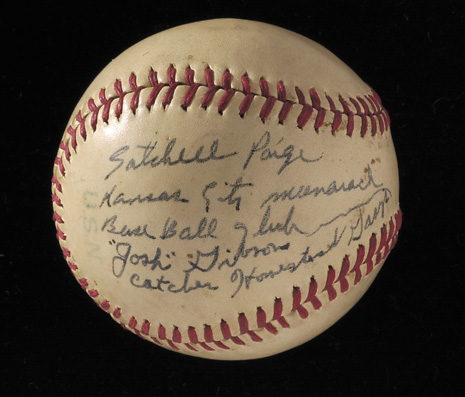 Satchell Paige
Kansas City Moonarach
Base Ball Club
"Josh" Gibson
catcher Homestead Grays
USN